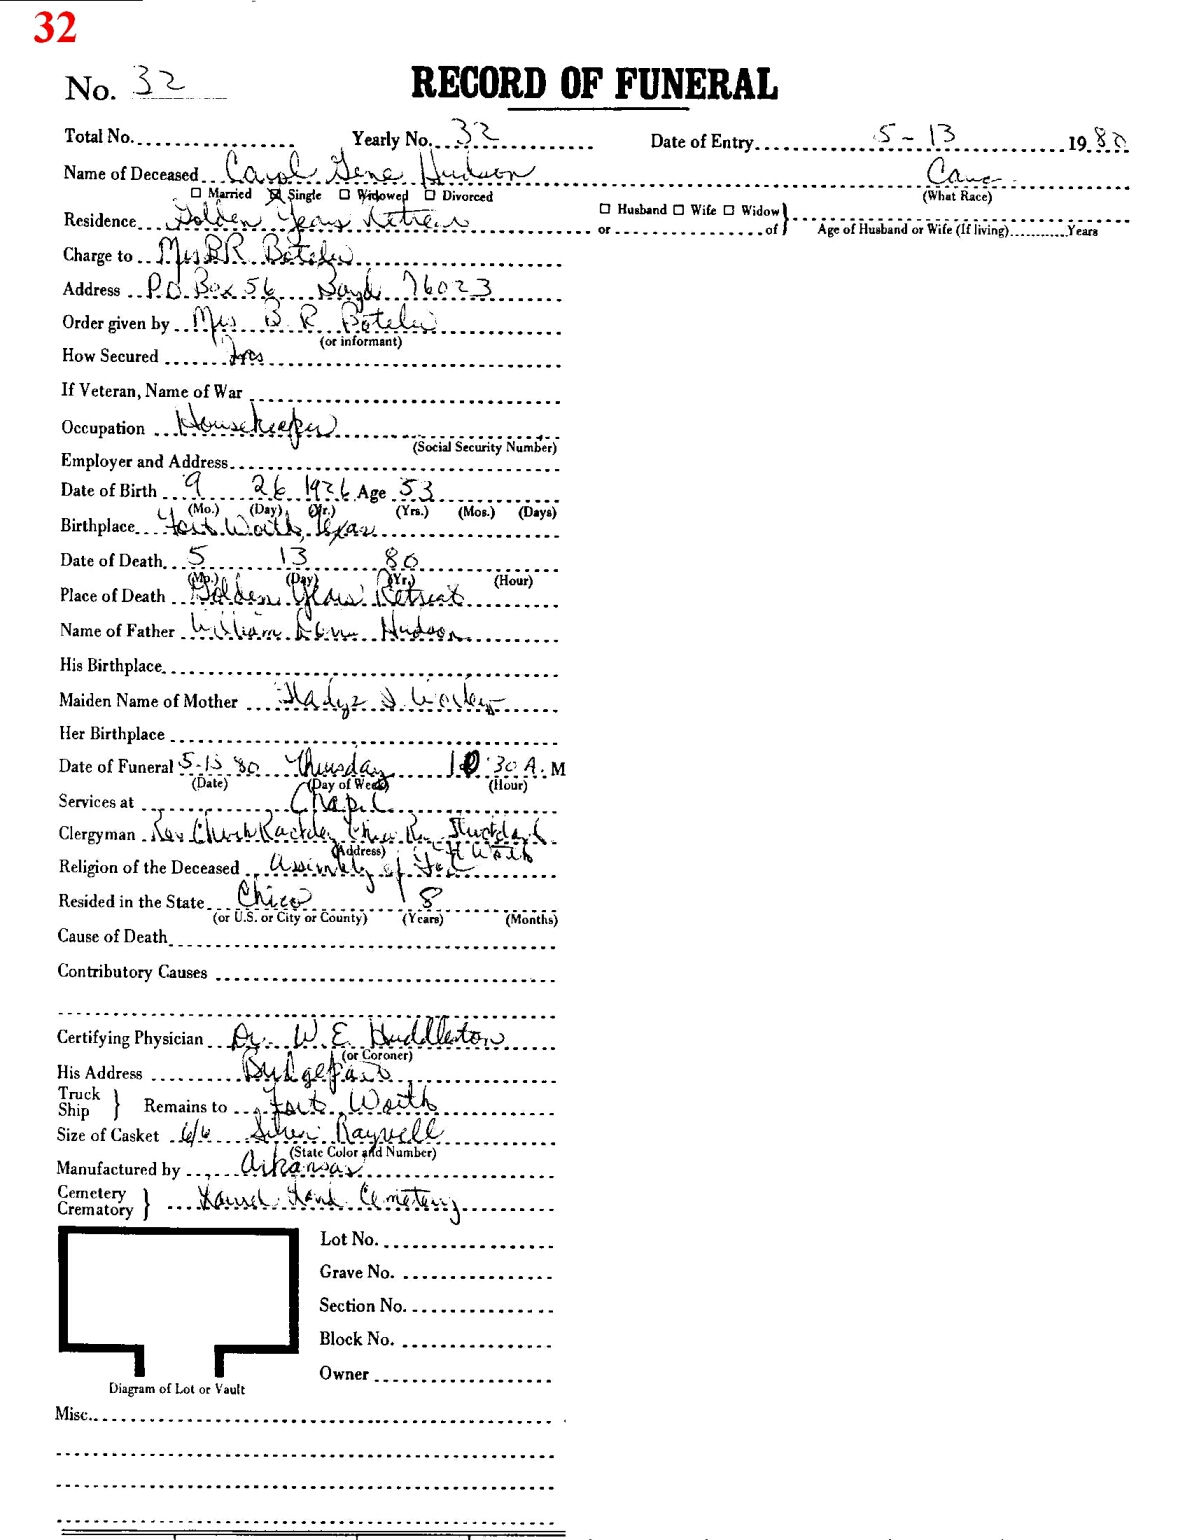 32
No. 32 RECORD OF FUNERAL
Total No. Yearly No. 32 Date of Entry 5-13 1980
Name of Deceased Carol Gene Hudson Cauc
☐ Married ☒ Single ☐ Widowed ☐ Divorced (What Race)
Residence Golden Years Retreat ☐ Husband ☐ Wife ☐ Widow } or of Age of Husband or Wife (If living) Years
Charge to Mrs B R Boteler
Address P.O Box 56 Boyd 76023
Order given by Mrs B. R Boteler
(or informant)
How Secured
If Veteran, Name of War
Occupation Housekeeper
(Social Security Number)
Employer and Address
Date of Birth 9 26 1926 Age 53
(Mo.) (Day) (Yr.) (Yrs.) (Mos.) (Days)
Birthplace Fort Worth, Texas
Date of Death 5 13 80
(Mo.) (Day) (Yr.) (Hour)
Place of Death Golden Years Retreat
Name of Father William Hudson
His Birthplace
Maiden Name of Mother Gladys Worley
Her Birthplace
Date of Funeral 5-15 80 Thursday 10:30 A. M
(Date) (Day of Week) (Hour)
Services at Chapel
Clergyman Rev Rackley Rev
(Address) Ft Worth
Religion of the Deceased Assembly of God
Resided in the State Chico 8
(or U.S. or City or County) (Years) (Months)
Cause of Death
Contributory Causes
Certifying Physician Dr. W. E. Huddleston
(or Coroner)
His Address Bridgeport
Truck Ship } Remains to Fort Worth
Size of Casket 6/6 Silver Rayvell
(State Color and Number)
Manufactured by Arkansas
Cemetery Crematory } Laurel Land Cemetery
Lot No.
Grave No.
Section No.
Block No.
Owner
Diagram of Lot or Vault
Misc.